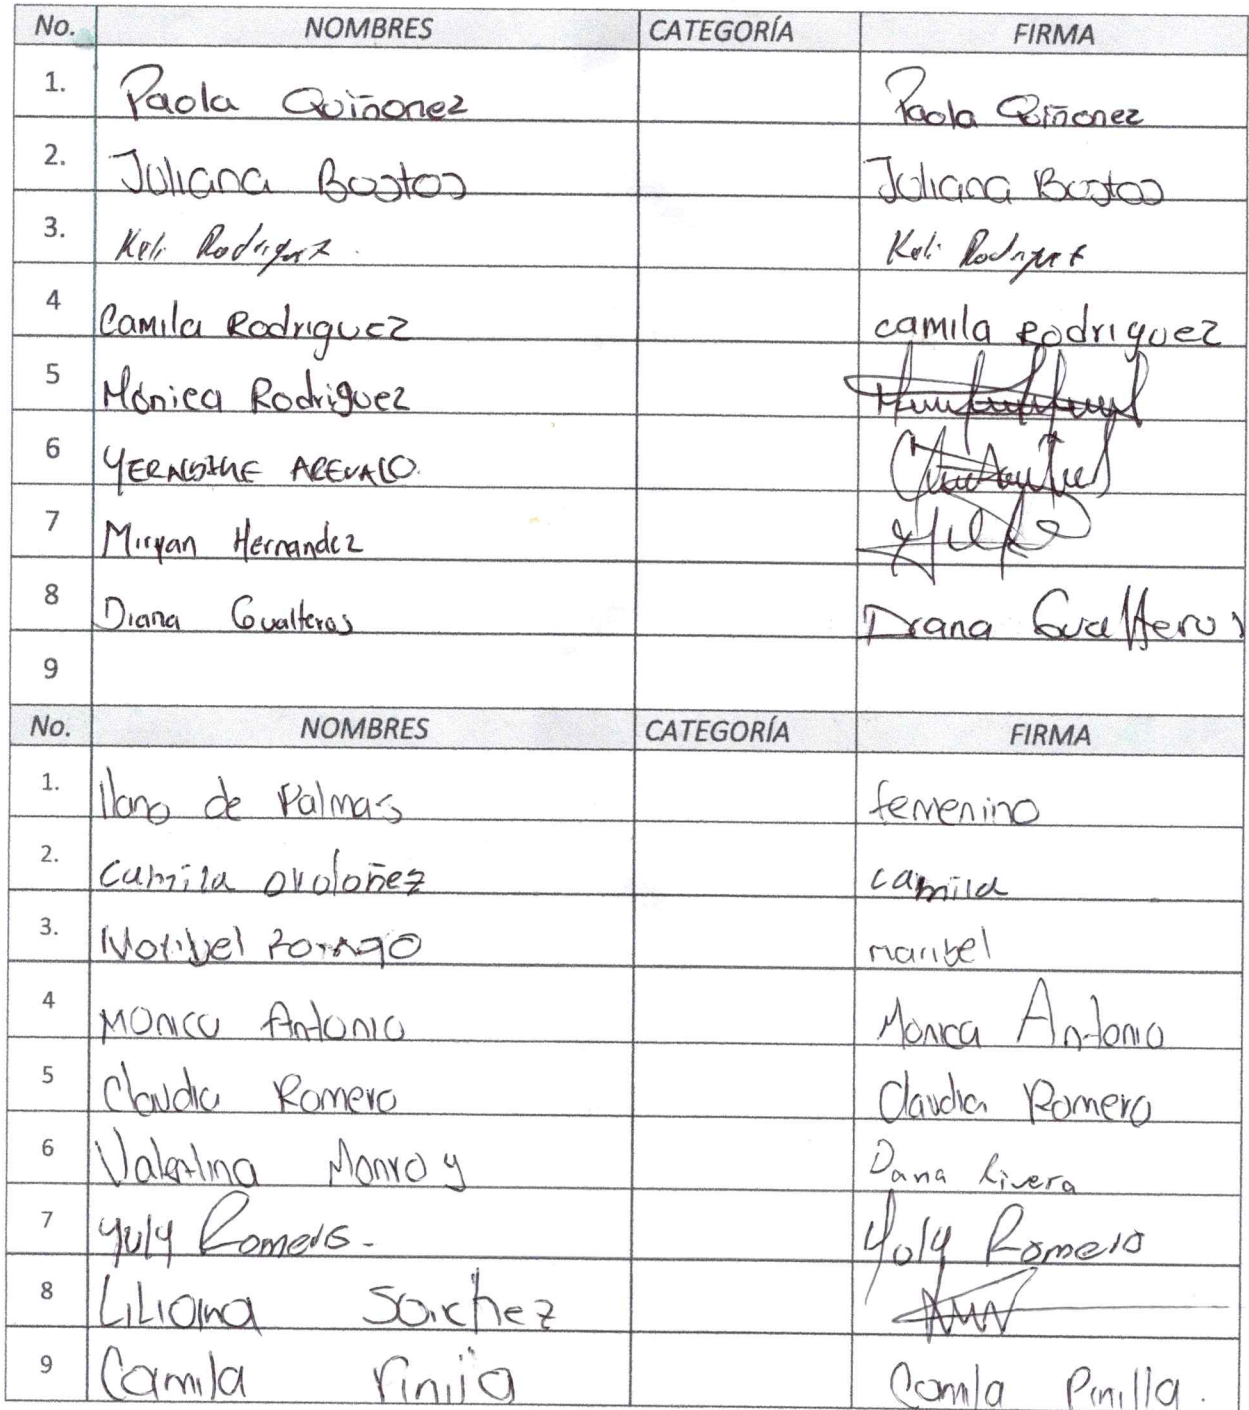 No. NOMBRES CATEGORÍA FIRMA
1. Paola Quiñonez Paola Quiñonez
2. Juliana Bostos Juliana Bostos
3. Keli Rodriguez. Keli Rodriguez
4 Camila Rodriguez camila Rodriguez
5 Mónica Rodriguez
6 YERALDINE AREVALO.
7 Miryan Hernandez
8 Diana Gualteros Diana Gualteros
9
No. NOMBRES CATEGORÍA FIRMA
1. llano de Palmas femenino
2. camila camila
3. Maribel maribel
4 Monica Antonio Monica Antonio
5 Claudia Romero Claudia Romero
6 Valentina Monroy Dana Rivera
7 Yuly Romero. Yuly Romero
8 LiLiana Sanchez
9 Camila Pinija Camila Pinilla.